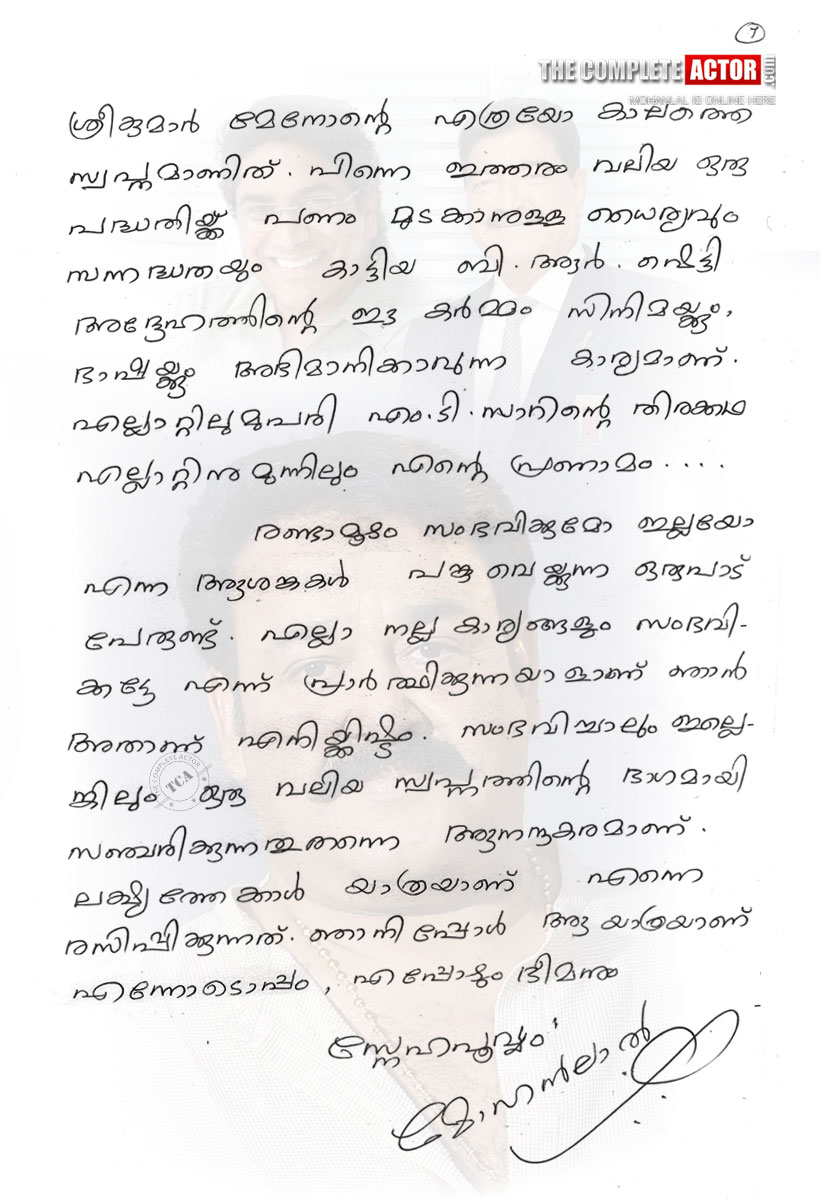 7
THE COMPLETE ACTOR .COM
MOHANLAL IS ONLINE HERE
ശ്രീകുമാർ മേനോന്റെ എത്രയോ കാലത്തെ
സ്വപ്നമാണിത്. പിന്നെ ഇത്തരം വലിയ ഒരു
പദ്ധതിയ്ക്ക് പണം മുടക്കാനുള്ള ധൈര്യവും
സന്നദ്ധതയും കാട്ടിയ ബി. ആർ. ഷെട്ടി
അദ്ദേഹത്തിന്റെ ഈ കർമ്മം സിനിമയ്ക്കും,
ഭാഷയ്ക്കും അഭിമാനിക്കാവുന്ന കാര്യമാണ്.
എല്ലാറ്റിലുമുപരി എം.ടി. സാറിന്റെ തിരക്കഥ
എല്ലാറ്റിനുമുന്നിലും എന്റെ പ്രണാമം....
രണ്ടാമൂഴം സംഭവിക്കുമോ ഇല്ലയോ
എന്ന ആശങ്കകൾ പങ്കുവെയ്ക്കുന്ന ഒരുപാട്
പേരുണ്ട്. എല്ലാ നല്ല കാര്യങ്ങളും സംഭവി-
ക്കട്ടേ എന്ന് പ്രാർത്ഥിക്കുന്നയാളാണ് ഞാൻ
അതാണ് എനിയ്ക്കിഷ്ടം. സംഭവിച്ചാലും ഇല്ലെ-
ങ്കിലും ഒരു വലിയ സ്വപ്നത്തിന്റെ ഭാഗമായി
സഞ്ചരിക്കുന്നതുതന്നെ ആനന്ദകരമാണ്.
ലക്ഷ്യത്തേക്കാൾ യാത്രയാണ് എന്നെ
രസിപ്പിക്കുന്നത്. ഞാനിപ്പോൾ ആ യാത്രയാണ്
എന്നോടൊപ്പം, എപ്പോഴും ഭീമനും
THE COMPLETE ACTOR
TCA
സ്നേഹപൂർവ്വം
മോഹൻലാൽ